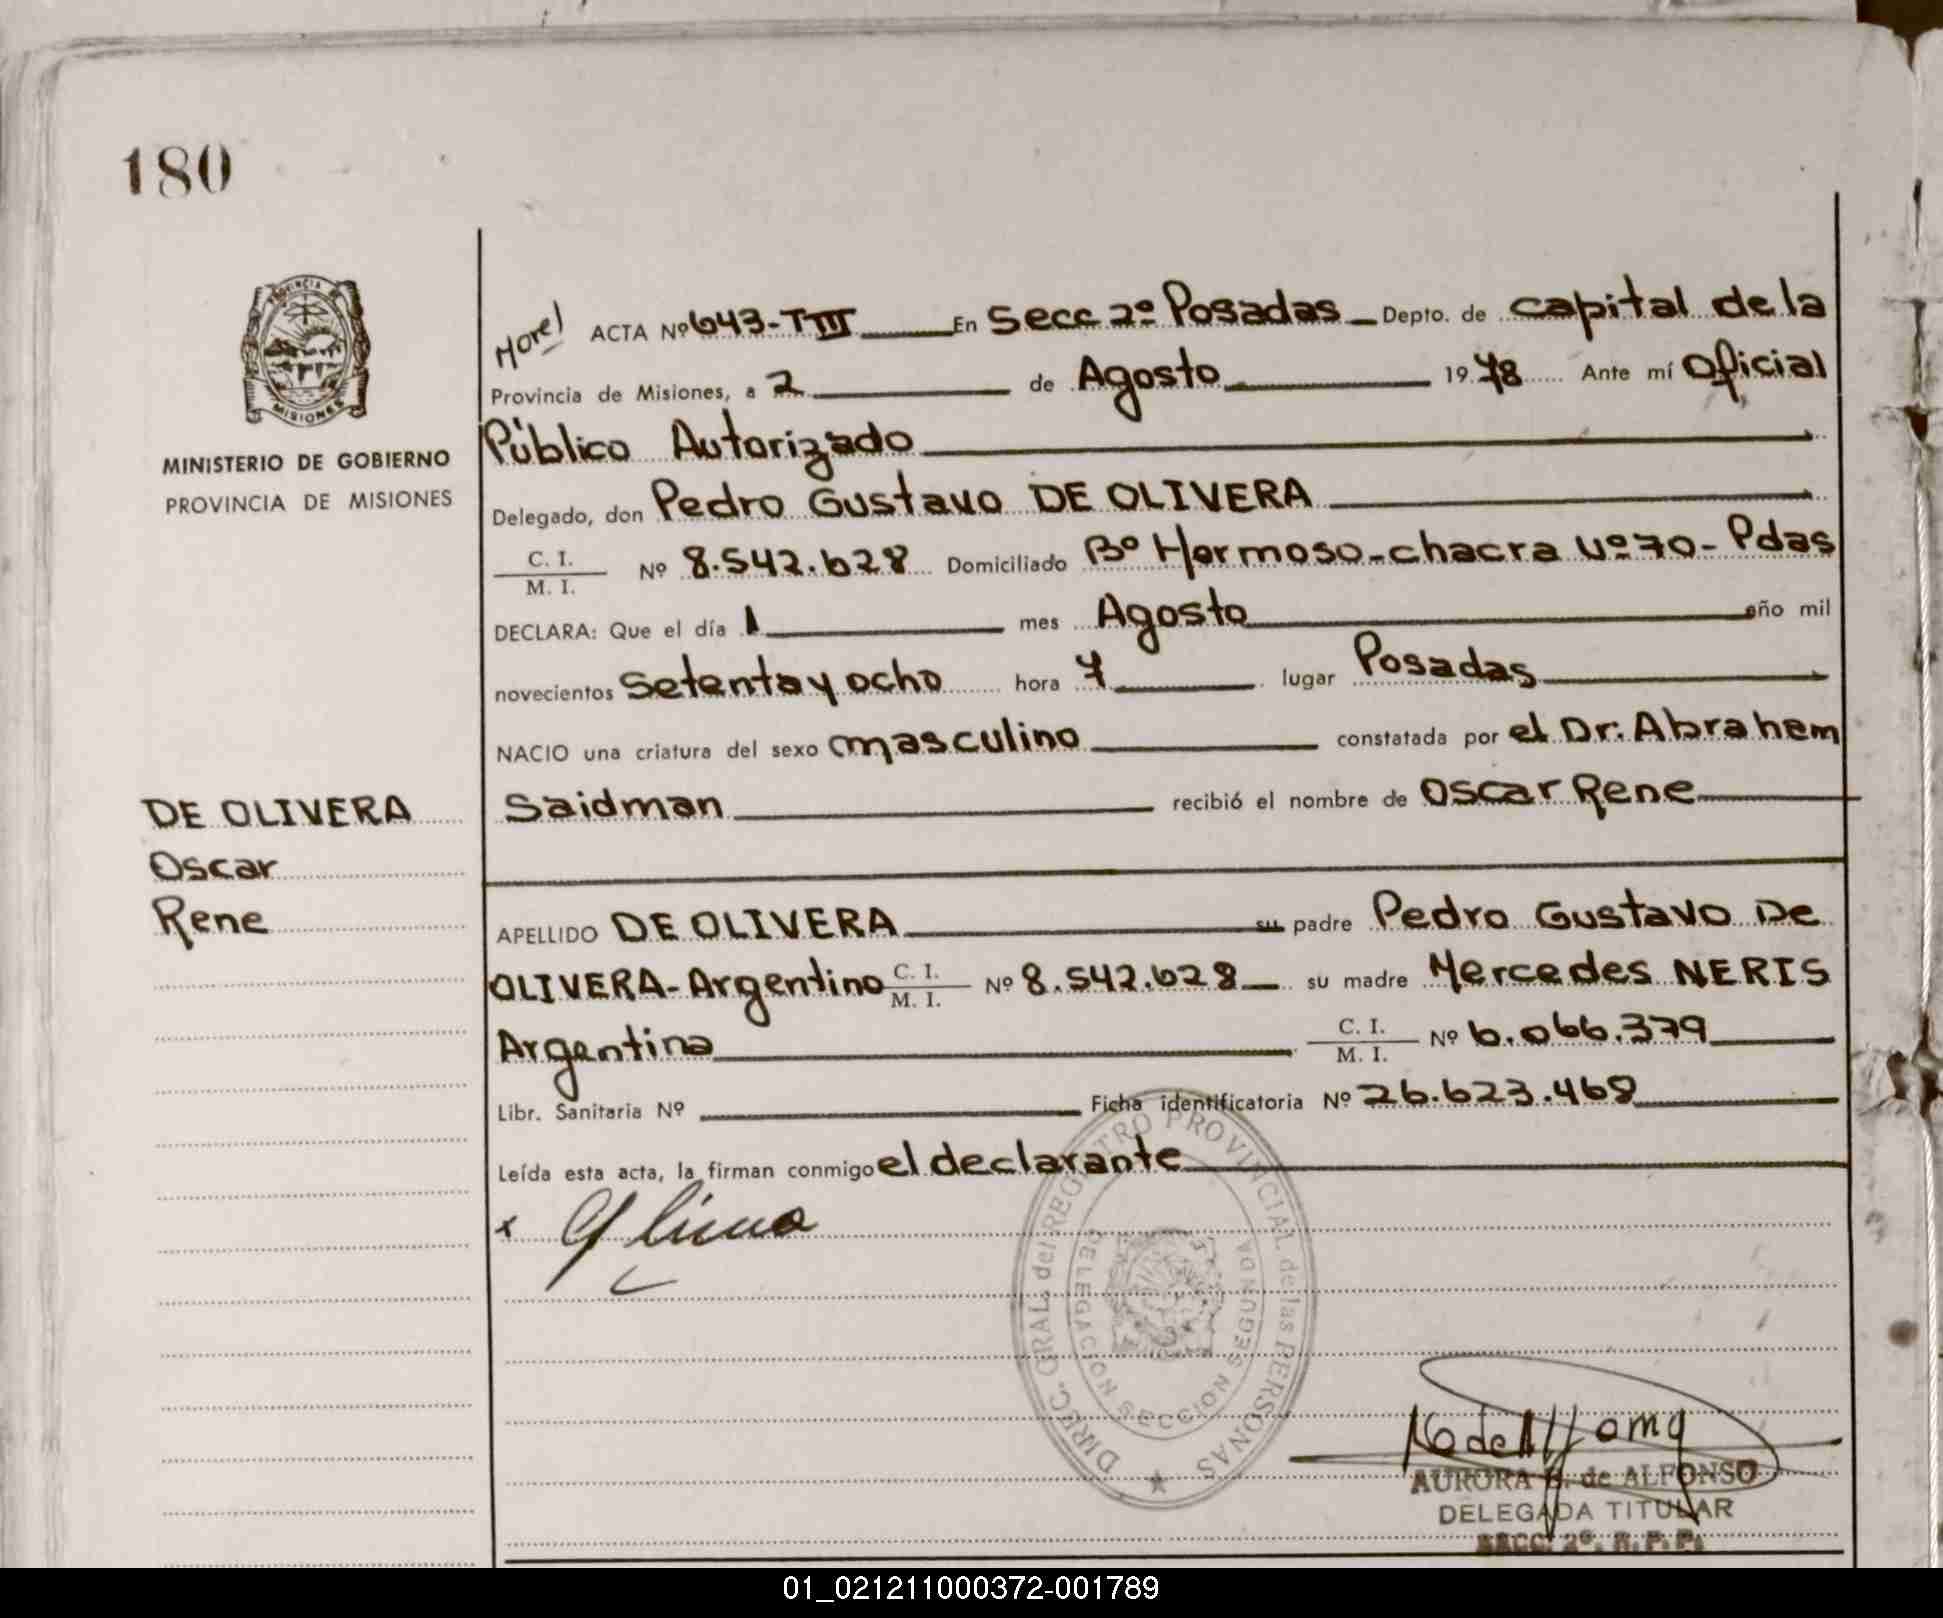 180
PROVINCIA DE
MISIONES
MINISTERIO DE GOBIERNO
PROVINCIA DE MISIONES
DE OLIVERA
Oscar
Rene
ACTA Nº 643-TIII En Secc 2º Posadas Depto. de capital de la
Provincia de Misiones, a 2 de Agosto 1978 Ante mí Oficial
Público Autorizado
Delegado, don Pedro Gustavo DE OLIVERA
C. I.
M. I. Nº 8.542.628 Domiciliado Bº Hermoso-chacra Nº 70- Pdas
DECLARA: Que el día 1 mes Agosto año mil
novecientos Setenta y ocho hora 7 lugar Posadas
NACIO una criatura del sexo masculino constatada por el Dr: Abraham
Saidman recibió el nombre de Oscar Rene
APELLIDO DE OLIVERA su padre Pedro Gustavo De
OLIVERA-Argentino C. I. M. I. Nº 8.542.628 su madre Mercedes NERIS
Argentina C. I. M. I. Nº 6.066.379
Libr. Sanitaria Nº Ficha identificatoria Nº 26.623.468
Leída esta acta, la firman conmigo el declarante
x
DIREC. GRAL. del REGISTRO PROVINCIAL de las PERSONAS
DELEGACION SECCION SEGUNDA
AURORA de ALFONSO
DELEGADA TITULAR
SECC. 2º. R. P. P.
01_021211000372-001789